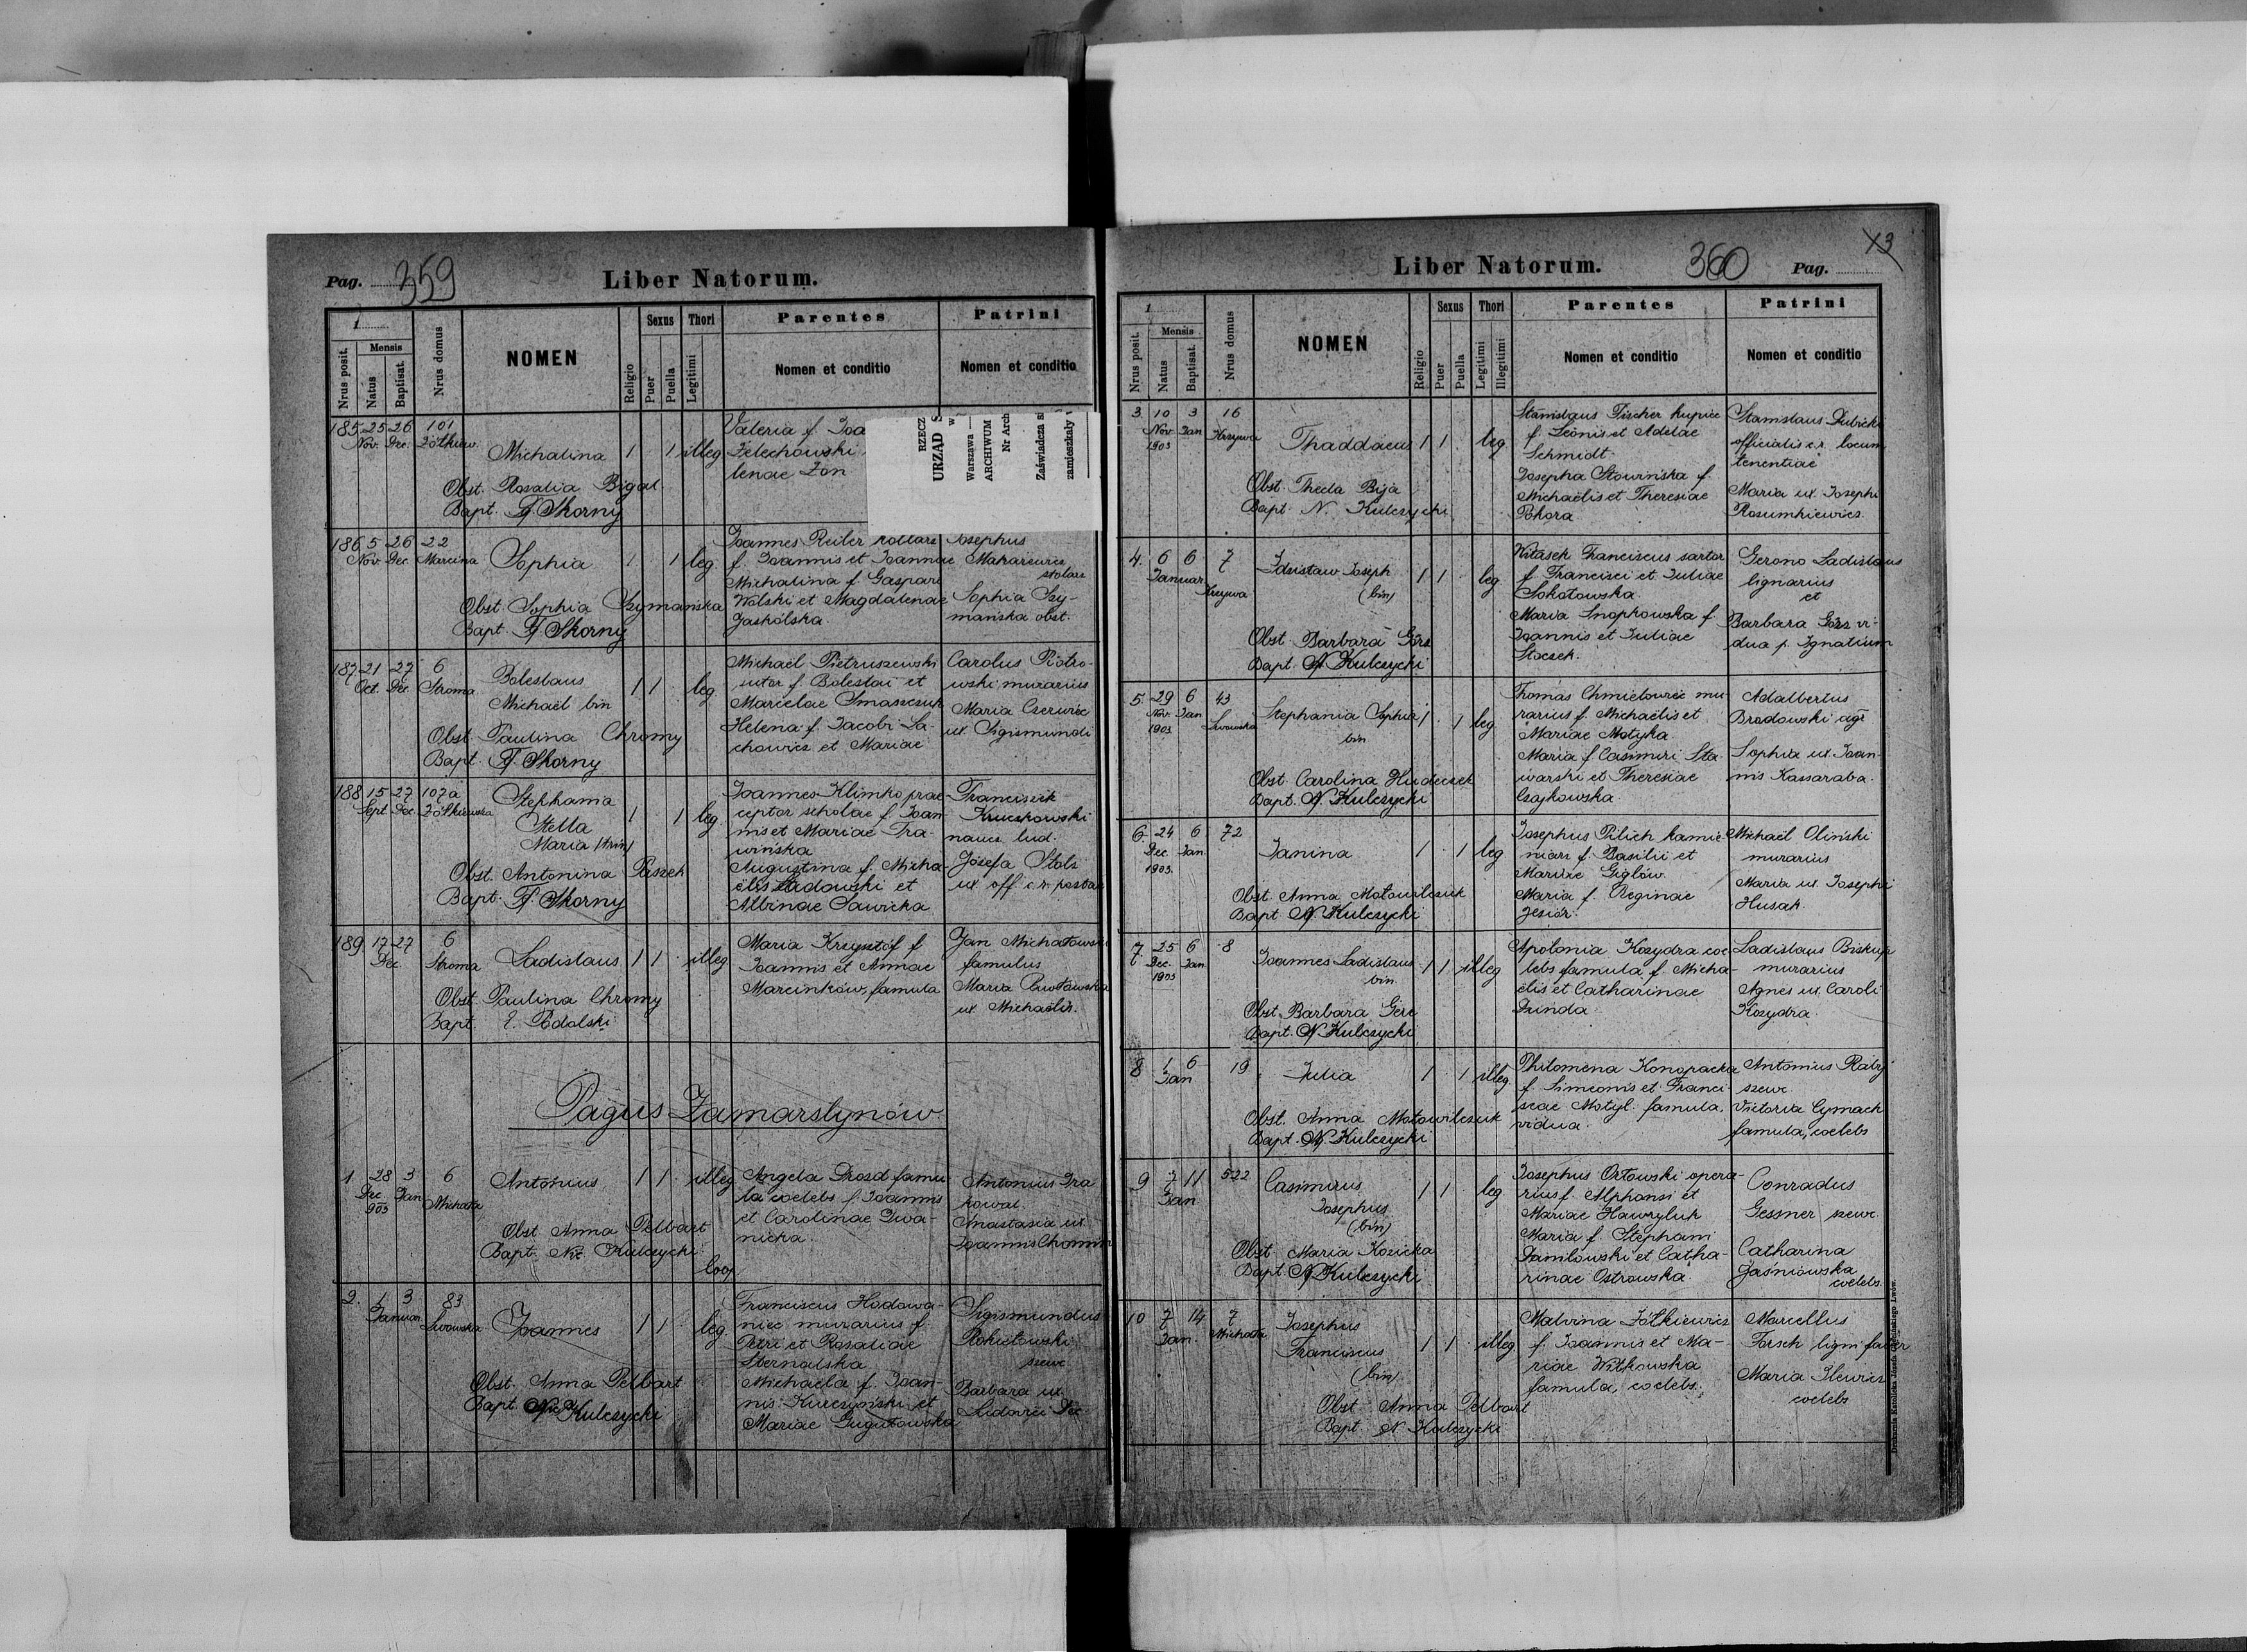 Pag. 359
Liber Natorum.
1
Nrus posit. Mensis Natus Baptisat. Nrus domus NOMEN Religio Sexus Puer Puella Thori Legitimi Parentes Nomen et conditio Patrini Nomen et conditio
185 25 Nov. 26 Dec. 101 Żółkiew.
Michalina 1 1 illeg
Obst. Rosalia Bigal
Bapt. F. Skorny
Valeria f. Joa
Żelechowski
lenae Zon
RZECZ
URZĄD S
w
Warszawa —
ARCHIWUM
Nr Arch
Zaświadcza s
zamieszkały
186 5 Nov. 26 Dec. 22 Marcina
Sophia 1 1 leg
Obst. Sophia Szymańska
Bapt. F. Skorny
Joannes Reiler
f. Joannis et Joannae
Michalina f. Gaspari
Wolski et Magdalenae
Jaskólska.
Josephus
Makarewicz
stolarz
Sophia Szy-
mańska obst.
187 21 Oct. 27 Dec. 6 Stroma
Boleslaus
Michaël bin
1 1 leg
Obst. Paulina Chromy
Bapt. F. Skorny
Michaël Pietruszewski
sutor f. Boleslai et
Marcelae Smaszczuk
Helena f. Jacobi La-
chowicz et Mariae
Carolus Piotro-
wski murarius
Maria Czerwiec
ux. Sigismundi
188 15 Sept. 27 Dec. 107a Żółkiewska
Stephania
Stella
Maria (trin)
1 1 leg
Obst. Antonina Paszek
Bapt. F. Skorny
Joannes Klimko prae-
ceptor scholae f. Joan
nis et Mariae Tra-
wińska
Augustina f. Micha-
ëlis Ladowski et
Albinae Sawicka
Franciszek
Kruczkowski
naucz. lud.
Józefa Stolz
ux. off. c.r. postar
189 17 Dec. 27 6 Stroma
Ladislaus 1 1 illeg
Obst. Paulina Chromy
Bapt. E. Podolski
Maria Krzysztof f
Joannis et Annae
Marcinków, famula
Jan Michałowski
famulus
Maria
ux. Michaëlis.
Pagus Zamarstynów
1 28 Dec. 903 3 Jan 6 Michała
Antonius 1 1 illeg
Obst. Anna Pelbart
Bapt. Nic. Kulczycki
Angela Drozd famu
la coelebs f. Joannis
et Carolinae Iwa-
nicka
Antonius Dra
kowal.
Anastasia ux.
Joannis Chomin
2. 1 Januar 3 83 Lwowska
Joannes 1 1 leg
Obst. Anna Pelbart
Bapt. Nic. Kulczycki
Franciscus Hodowa-
niec murarius f.
Petri et Rosaliae
Sternalska
Michaela f. Joan-
nis Kurczyński et
Mariae Gugułowska
Sigismundus
Rokietowski
szewc
Barbara ux.
Isidori Dec
Liber Natorum. 360 Pag. 13
1
Nrus posit. Mensis Natus Baptisat. Nrus domus NOMEN Religio Sexus Puer Puella Thori Legitimi Illegitimi Parentes Nomen et conditio Patrini Nomen et conditio
3 10 Nov 1903 3 Jan 16 Krzywa
Thaddaeus 1 1 leg
Obst. Thecla Bija
Bapt. N. Kulczycki
Stanislaus Fischer kupiec
f. Leonis et Adelae
Schmidt.
Josepha Słowińska f.
Michaëlis et Theresiae
Pohora
Stanislaus Dubicki
officialis c.r. locum
tenentiae
Maria ux. Josephi
Rozumkiewicz.
4 6 Januar 6 7 Krzywa
Zdzisław Joseph
(bin)
1 1 leg
Obst. Barbara Görz
Bapt. N. Kulczycki
Witasek Franciscus sartor
f. Francisci et Juliae
Sokołowska.
Maria Snopkowska f.
Joannis et Juliae
Stoczek.
Gerono Ladislaus
lignarius
et
Barbara Görz vi-
dua p. Ignatium
5 29 Nov. 1903 6 Jan 43 Lwowska
Stephania Sophia
bin
1 1 leg
Obst. Carolina Hudeczek
Bapt. N. Kulczycki
Thomas Chmielowiec mu
rarius f. Michaëlis et
Mariae Motyka
Maria f. Casimiri Sta-
warski et Theresiae
Czajkowska.
Adalbertus
Brodowski agr
Sophia ux. Joan-
nis Kassaraba.
6 24 Dec. 1903 6 Jan 72
Janina 1 1 leg
Obst. Anna Motowilczuk
Bapt. N. Kulczycki
Josephus Pilich kamie-
niarz f. Basilii et
Mariae Giglów.
Maria f. Reginae
Jesiór.
Michaël Oliński
murarius
Maria ux. Josephi
Husak.
7 25 Dec. 1903 6 Jan 8
Joannes Ladislaus
bin.
1 1 illeg
Obst. Barbara Gere
Bapt. N. Kulczycki
Apolonia Kozydra coe-
lebs famula, f. Micha-
elis et Catharinae
Dzinda.
Ladislaus Biskup
murarius
Agnes ux. Caroli
Kozydra.
8 1 Jan 6 19
Julia 1 1 illeg
Obst. Anna Motowilczuk
Bapt. N. Kulczycki
Philomena Konopacka
f. Simeonis et Franci-
scae Motyl. famula,
vidua.
Antonius Rabij
szewc.
Victoria Cymach
famula, coelebs
9 7 Jan 11 522
Casimirus
Josephus
(bin)
1 1 leg
Obst. Maria Kozicka
Bapt. N. Kulczycki
Josephus Orłowski opera-
rius f. Alphonsi et
Mariae Hawryluk
Maria f. Stephani
Daniłowski et Catha-
rinae Ostrowska.
Conradus
Gessner szewc.
Catharina
Jaśniowska
coelebs.
10 7 Jan. 14 7 Michała
Josephus
Franciscus
(bin)
1 1 illeg
Obst. Anna Pelbart
Bapt. N. Kulczycki
Malvina Żółkiewicz
f. Joannis et Ma-
riae Witkowska
famula, coelebs.
Marcellus
Forsch lign. faber
Maria Ilewicz
coelebs
Drukarnia Katolicka Józefa Chęcińskiego Lwów.